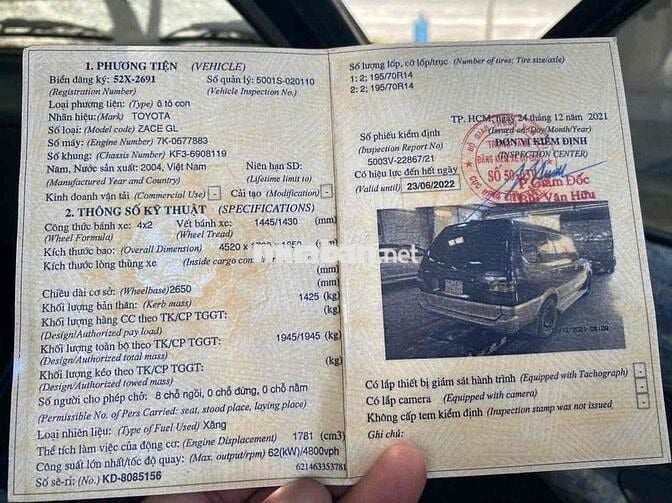 1. PHƯƠNG TIỆN (VEHICLE)
Biển đăng ký: 52X-2691 Số quản lý: 5001S-020110
(Registration Number) (Vehicle Inspection No.)
Loại phương tiện: (Type) ô tô con
Nhãn hiệu: (Mark) TOYOTA
Số loại: (Model code) ZACE GL
Số máy: (Engine Number) 7K-0677883
Số khung: (Chassis Number) KF3-6908119
Năm, Nước sản xuất: 2004, Việt Nam Niên hạn SD:
(Manufactured Year and Country) (Lifetime limit to)
Kinh doanh vận tải (Commercial Use) - Cải tạo (Modification) -
2. THÔNG SỐ KỸ THUẬT (SPECIFICATIONS)
Công thức bánh xe: 4x2 Vết bánh xe: 1445/1430 (mm)
(Wheel Formula) (Wheel Tread)
Kích thước bao: (Overall Dimension) 4520 x (mm)
Kích thước lòng thùng xe (Inside cargo
(mm)
Chiều dài cơ sở: (Wheelbase)2650 (mm)
Khối lượng bản thân: (Kerb mass) 1425 (kg)
Khối lượng hàng CC theo TK/CP TGGT: (kg)
(Design/Authorized pay load)
Khối lượng toàn bộ theo TK/CP TGGT: 1945/1945 (kg)
(Design/Authorized total mass)
Khối lượng kéo theo TK/CP TGGT: (kg)
(Design/Authorized towed mass)
Số người cho phép chở: 8 chỗ ngồi, 0 chỗ đứng, 0 chỗ nằm
(Permissible No. of Pers Carried: seat, stood place, laying place)
Loại nhiên liệu: (Type of Fuel Used) Xăng
Thể tích làm việc của động cơ: (Engine Displacement) 1781 (cm3)
Công suất lớn nhất/tốc độ quay: (Max. output/rpm) 62(kW)/4800vph
Số sê-ri: (No.) KD-8085156 621463353781
Số lượng lốp, cỡ lốp/trục (Number of tires; Tire size/axle)
1: 2; 195/70R14
2: 2; 195/70R14
TP. HCM, ngày 24 tháng 12 năm 2021
(Issued on: Day/Month/Year)
Số phiếu kiểm định ĐƠN VỊ KIỂM ĐỊNH
(Inspection Report No) (INSPECTION CENTER)
5003V-22867/21
Có hiệu lực đến hết ngày
(Valid until) 23/06/2022
P. Giám Đốc
Văn Hữu
Có lắp thiết bị giám sát hành trình (Equipped with Tachograph) -
Có lắp camera (Equipped with camera) -
Không cấp tem kiểm định (Inspection stamp was not issued) -
Ghi chú: